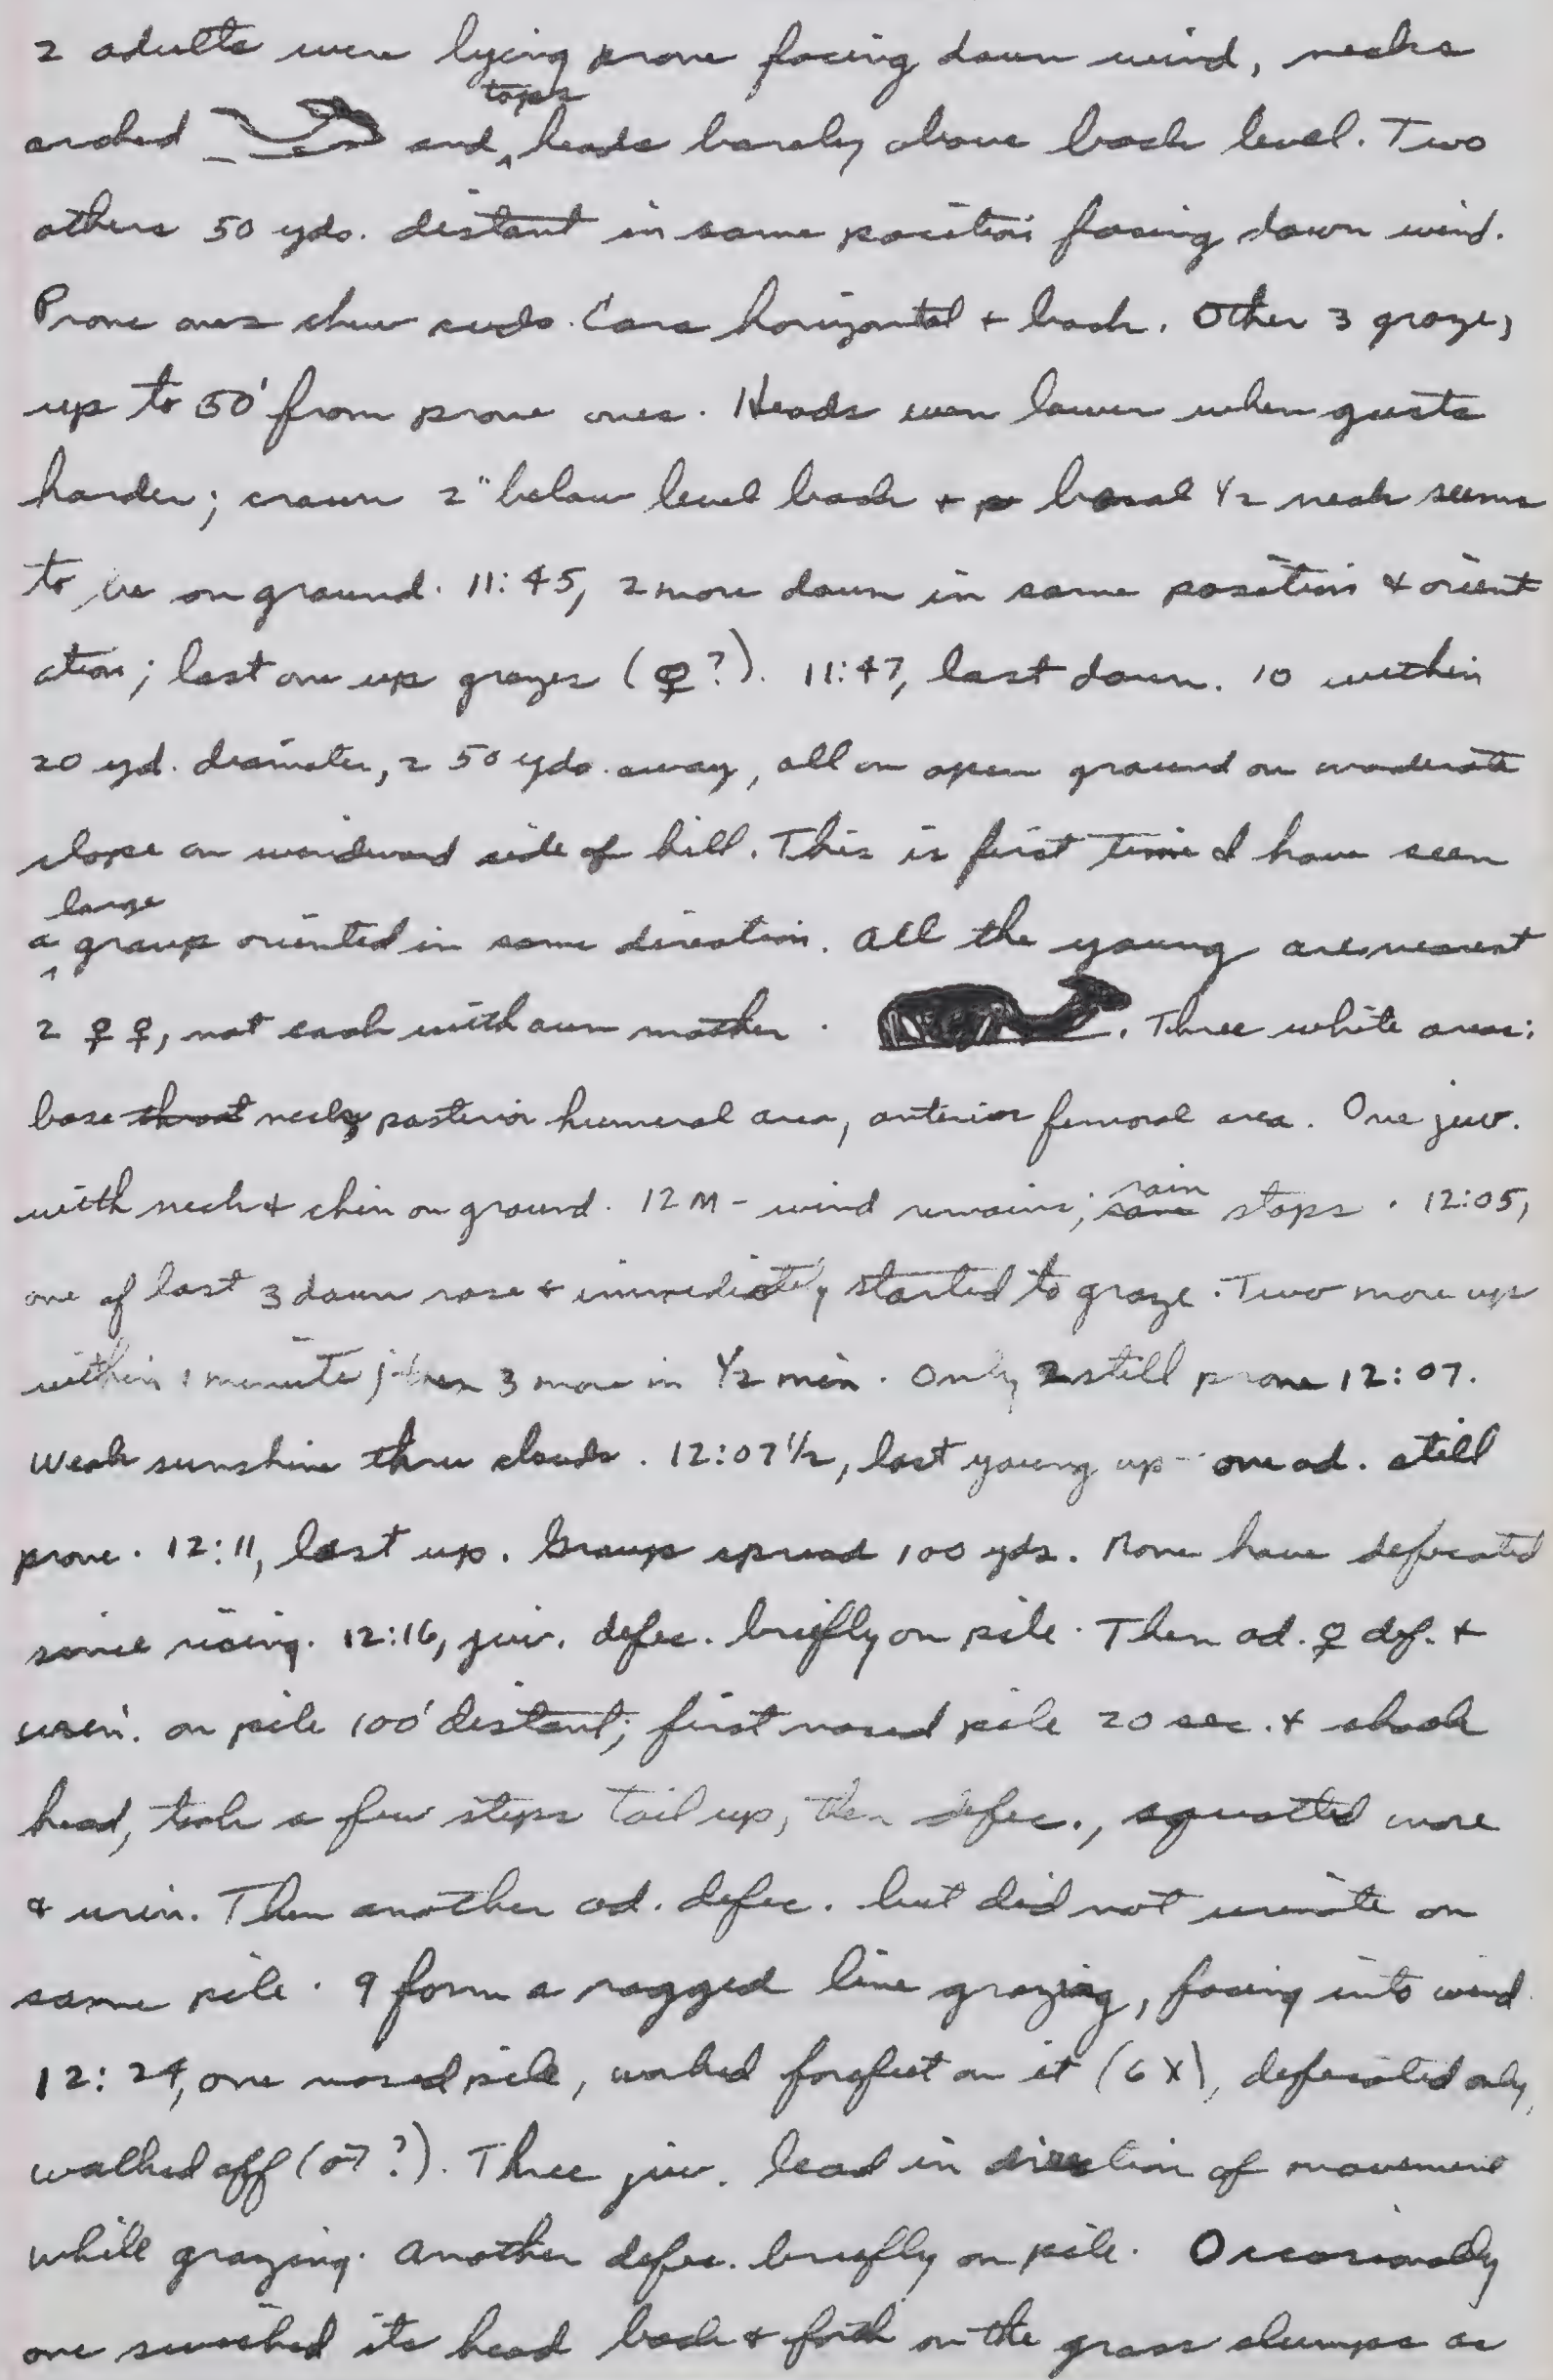 2 adults were lying prone facing down wind, necks
arched and tops heads barely above back level. Two
others 50 yds. distant in same position facing down wind.
Prone ones chew cuds. Ears horizontal + back. Other 3 graze,
up to 50' from prone ones. Heads even lower when gusts
harder; crown 2" below level back + basal 1/2 neck seems
to be on ground. 11:45, 2 more down in same position & orient
ation; last one up grazes (♀?). 11:47, last down. 10 within
20 yd. diameter, 2 50 yds. away, all on open ground on moderate
slope on windward side of hill. This is first time I have seen
a large group oriented in same direction. All the young are nearest
2 ♀♀, not each with own mother. Three white areas:
base throat neck, posterior humeral area, anterior femoral area. One juv.
with neck & chin on ground. 12 M - wind remains; rain stops. 12:05,
one of last 3 down rose & immediately started to graze. Two more up
within 1 minute; then 3 more in 1/2 min. Only 2 still prone 12:07.
Weak sunshine thru clouds. 12:07 1/2, last young up - one ad. still
prone. 12:11, last up. Group spread 100 yds. None have defecated
since rising. 12:16, juv. defec. briefly on pile. Then ad. ♀ def. &
urin. on pile 100' distant; first nosed pile 20 sec. & shook
head, took a few steps tail up, then defec., squatted more
& urin. Then another ad. defec. but did not urinate on
same pile. 9 form a ragged line grazing, facing into wind.
12:24, one nosed pile, worked forefeet on it (6X), defecated only,
walked off (♂?). Three juv. lead in direction of movement
while grazing. Another defec. briefly on pile. Occasionally
one swished its head back & forth on the grass clumps as